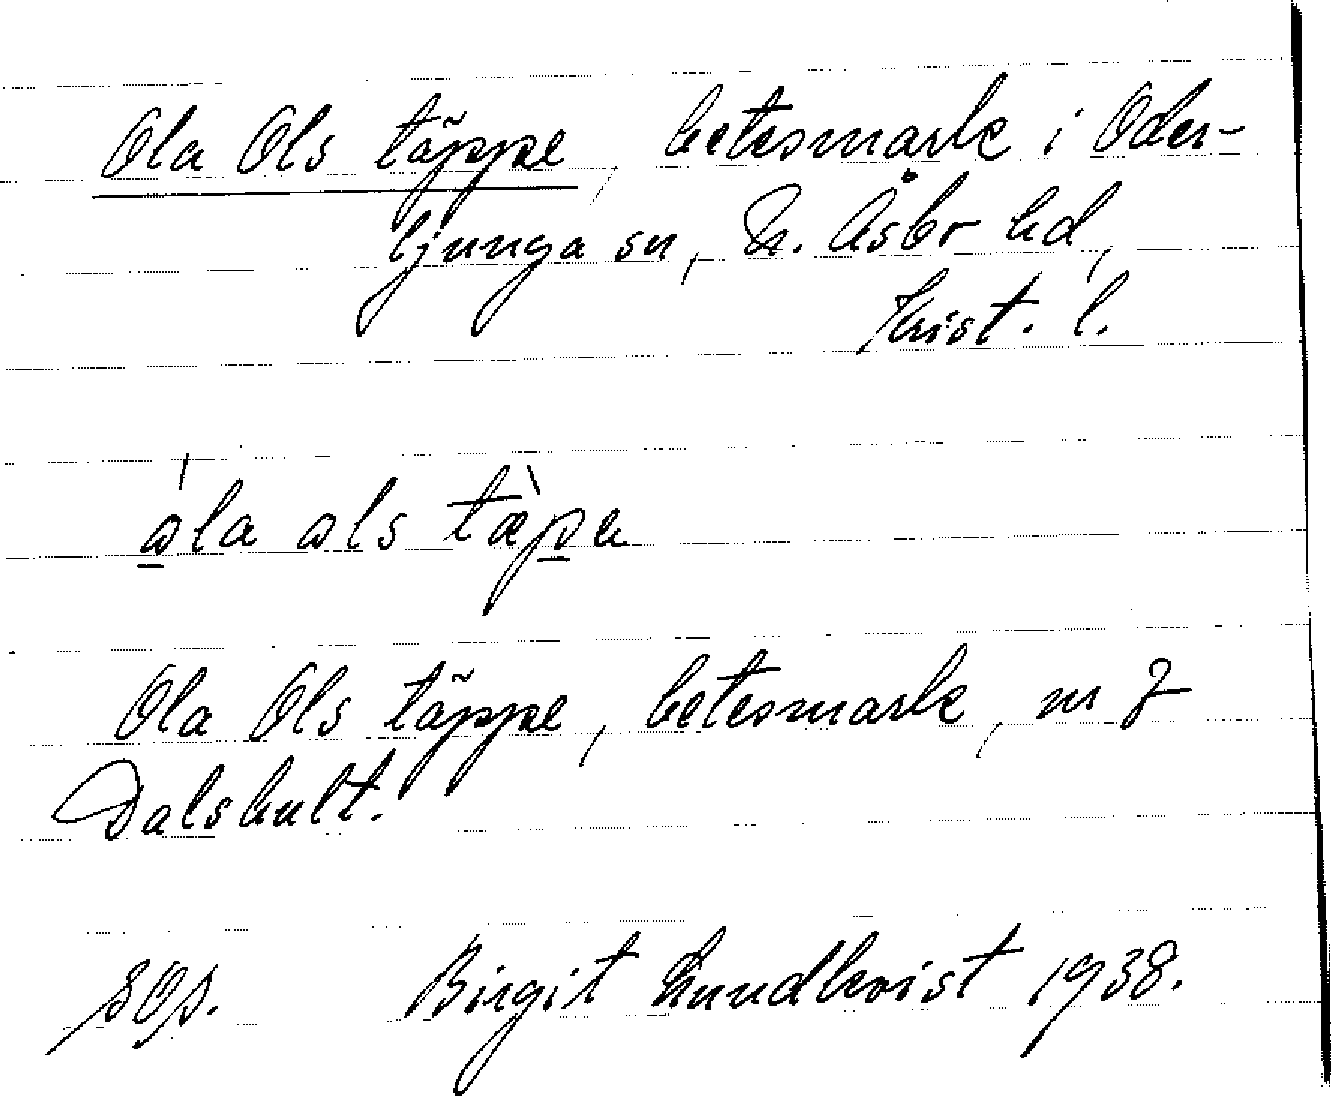 Ola Ols täppe, betesmark i Oder-
ljunga sn, N. Åsbo hd,
Krist. l.
ola ols täpe
Ola Ols täppe, betesmark, nr 7
Dalshult.
SOS. Birgit Lundkvist 1938.